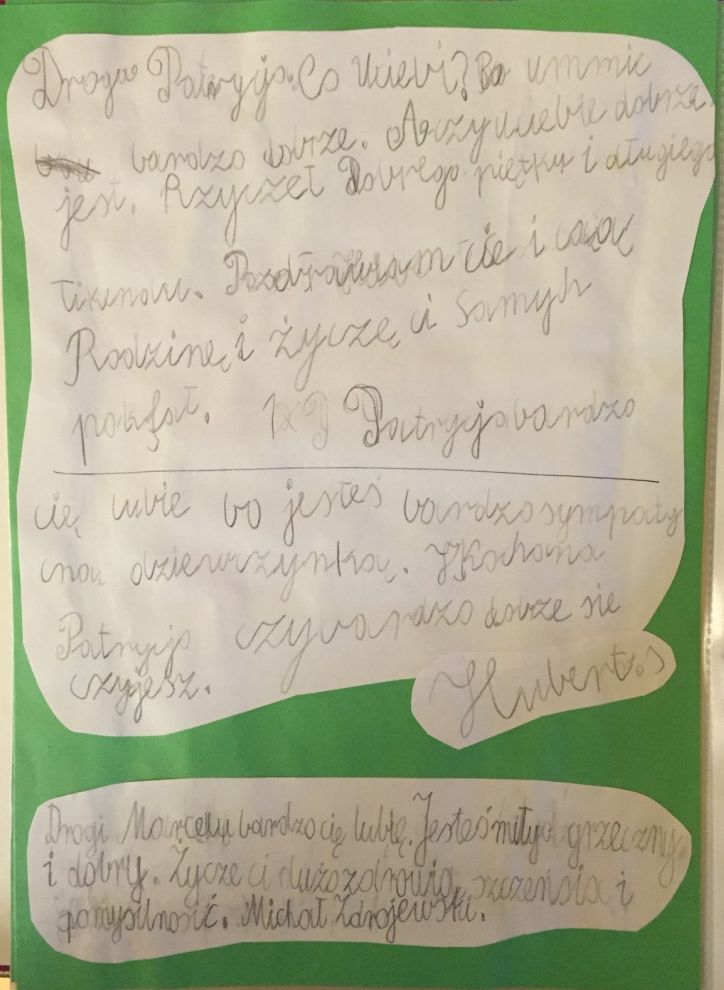 Droga Patrycjo. Co Uciebi? Bo ummie
bardzo dobrze. A czy uciebie dobrze
jest. Rzyczeł Dobrego piętku i długiego
łikendu. Pozdrawiam cie i całą
Rodzinę i życzę ci samyh
1xP Patrycjo bardzo
cię lubie bo jesteś bardzo sympaty
cna dziewczynką. Kochana
Patrycjo czy bardzo dobrze sie
czyjesz.
Hubert.s
Drogi Marcelu bardzo cię lubię. Jesteś miły grzeczny
i dobry. Życze ci dużo zdrowia, szczeńsia i
pomyśilność. Michał Zdrojewski.